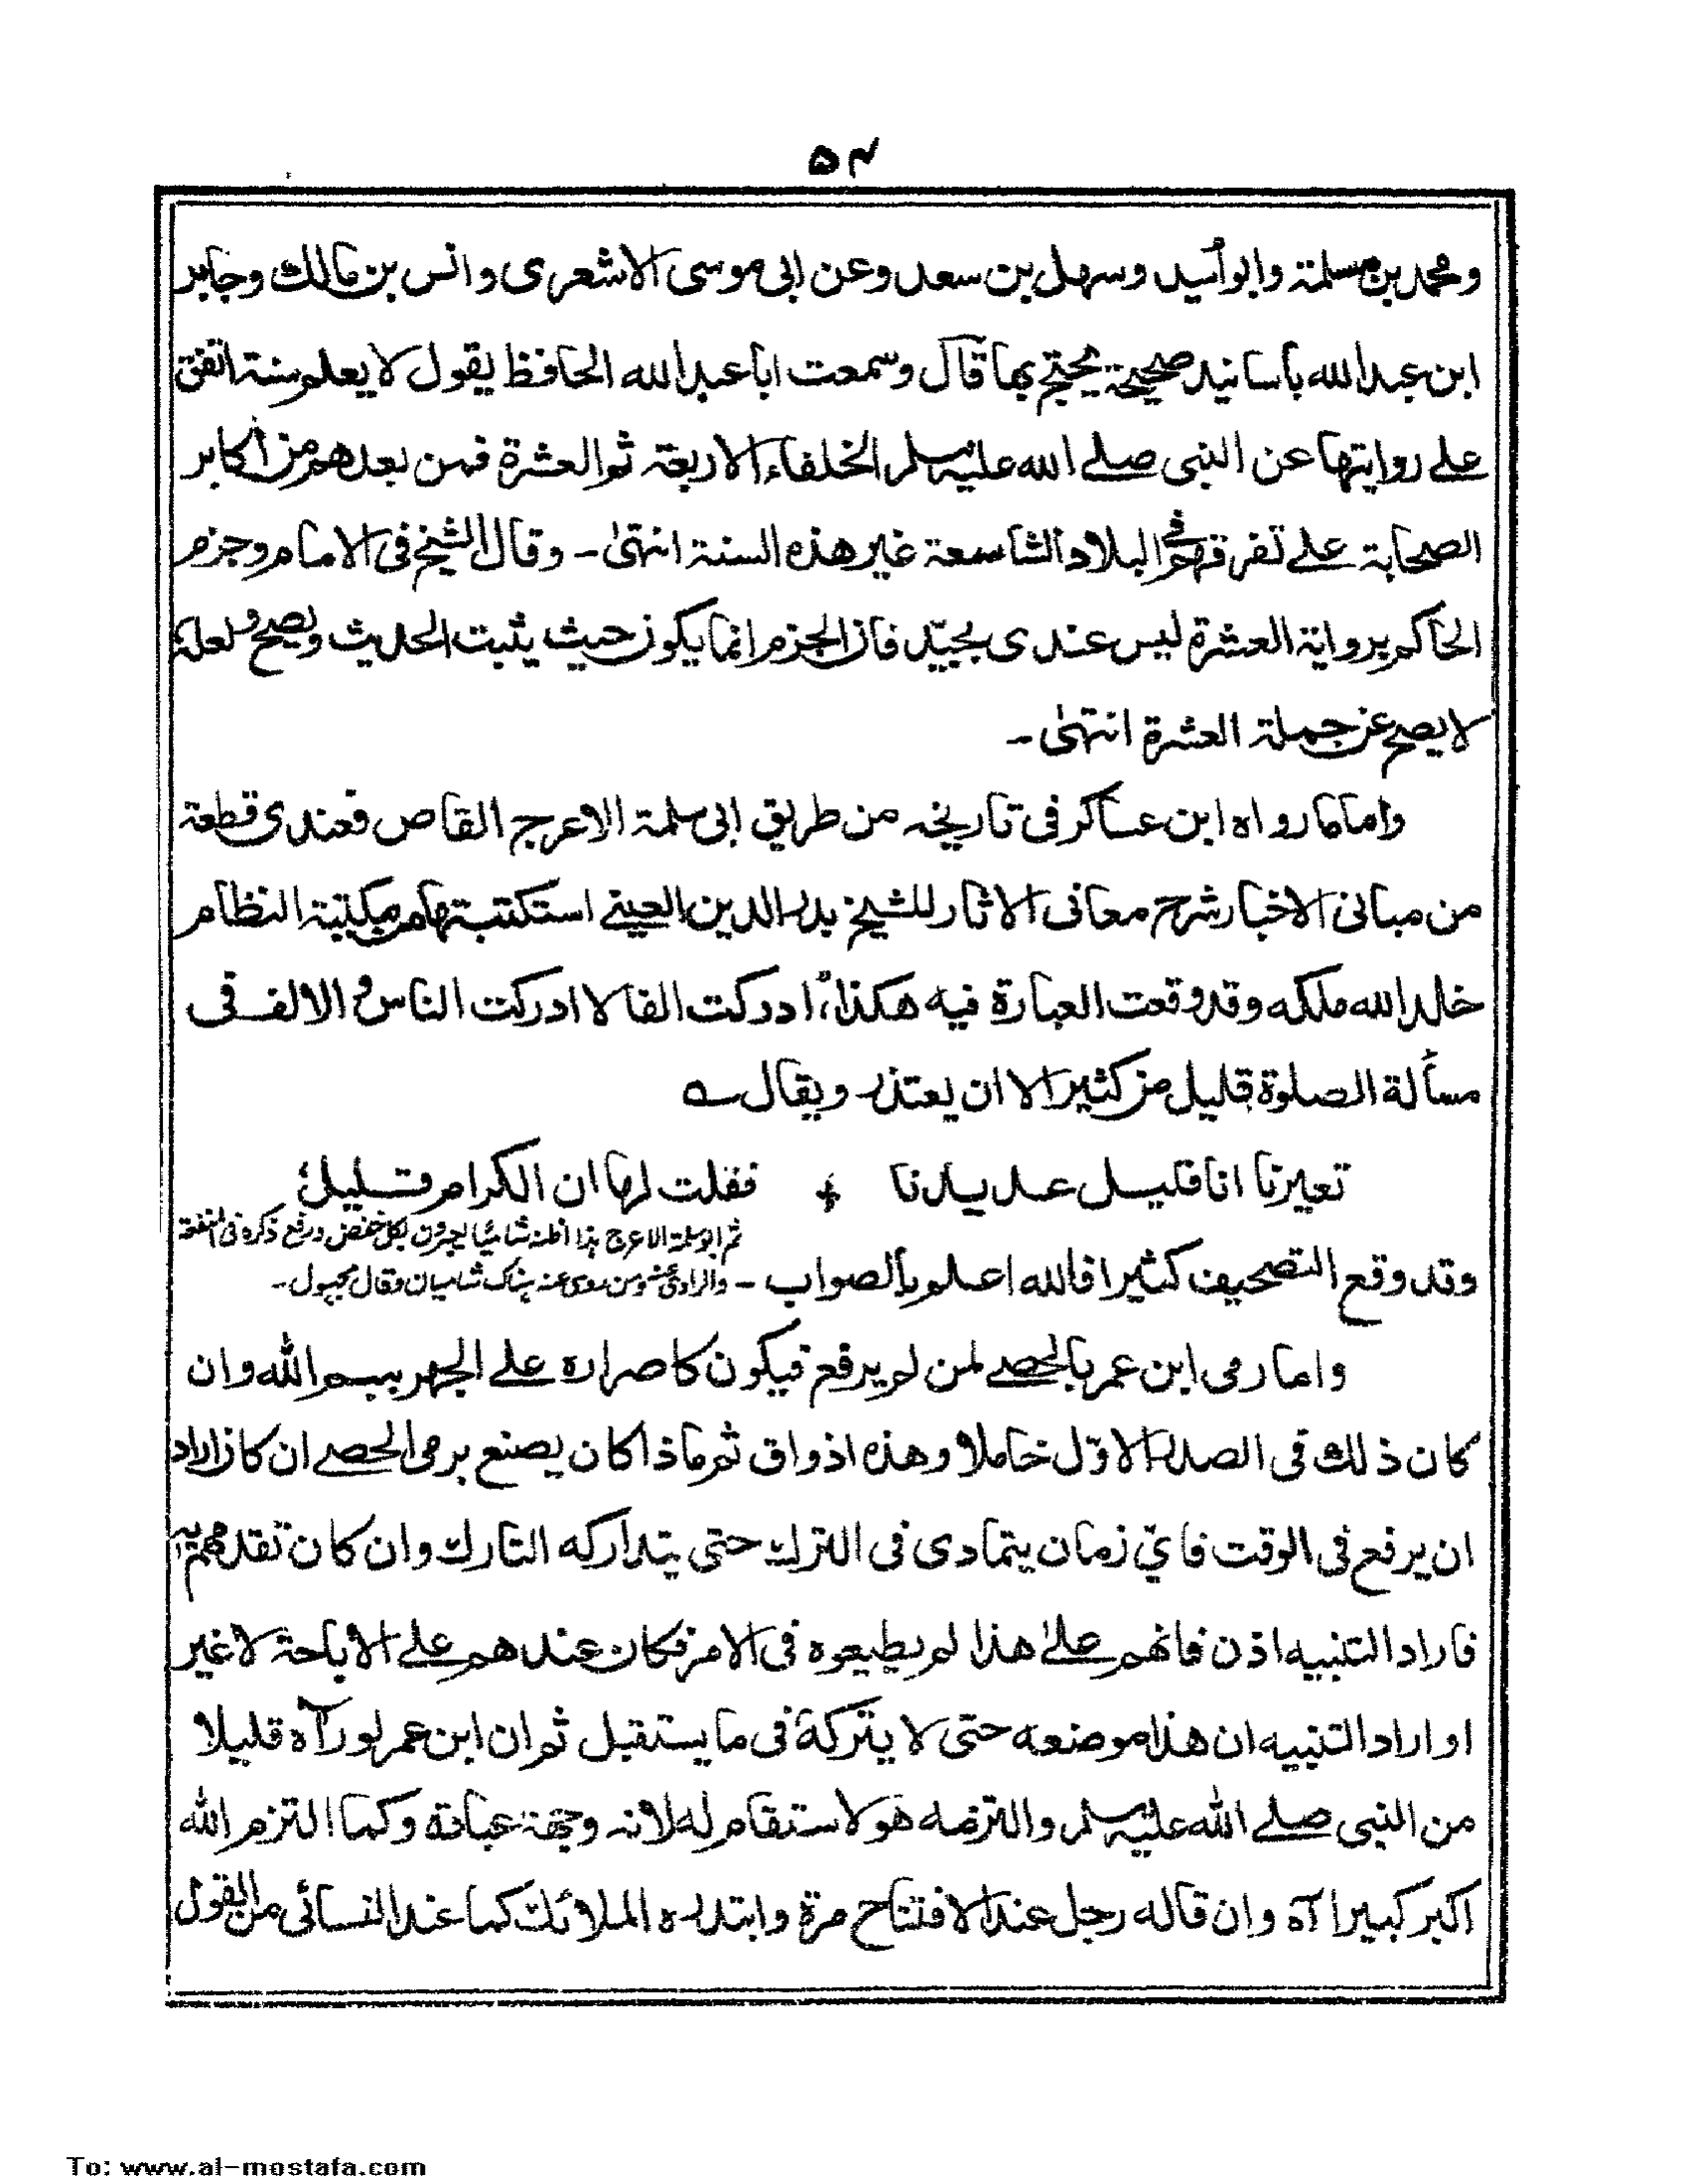 ۵۴
ومحمد بن مسلمة وابو أسيد وسهل بن سعد وعن ابى موسى الاشعرى وانس بن مالك وجابر
ابن عبد الله بأسانيد صحيحة يحتج بها قال وسمعت ابا عبد الله الحافظ يقول لا يعلم سنة اتفق
على روايتها عن النبى صلے الله عليه وسلم الخلفاء الاربعة ثم العشرة فمن بعدهم من أكابر
الصحابة علے تفرقهم فى البلاد الشاسعة غير هذه السنة انتهىٰ - وقال الشيخ فى الامام وجزم
الحاكم برواية العشرة ليس عندى بجيّد فان الجزم انما يكون حيث يثبت الحديث ويصح ولعله
لا يصح عن جملة العشرة انتهىٰ -
واما ما رواه ابن عساكر فى تاريخه من طريق ابى سلمة الاعرج القاص فعندى قطعة
من مبانى الاخبار شرح معانى الاثار للشيخ بدر الدين العينے استكتبتها من مكتبة النظام
خلد الله ملكه وقد وقعت العبارة فيه هكذا، ادركت الفا لا ادركت الناس و الالف فى
مسألة الصلوة قليل من كثير الا ان يعتذر ويقال ؎
تعيرنا انا قليل عديدنا + فقلت لها ان الكرام قليل
ثم ابو سلمة الاعرج هذا اظنه شاميا يجرون بكل خفض ورفع ذكره فى
وقد وقع التصحيف كثيرا فالله اعلم بالصواب - والراوى عنه هناك شاميان وقال مجهول -
واما رمى ابن عمر بالحصے لمن لم يرفع فيكون كاصراره علے الجهر ببسم الله وان
كان ذلك فى الصدر الاوّل خاملا وهذه اذواق ثم ماذا كان يصنع برمى الحصے ان كان اراد
ان يرفع فى الوقت فايّ زمان يتمادى فى الترك حتى يتداركه التارك وان كان تقدم
فاراد التنبيه اذن فانهم علےٰ هذا لم يطيعوه فى الامر فكان عندهم علے الاباحة لا غير
او اراد التنبيه ان هذا موضعه حتى لا يتركه فى ما يستقبل ثم ان ابن عمر لو رآه قليلا
من النبى صلے الله عليه وسلم والتزمه هو لاستقام له لانه وجهة عبادة وكما التزم الله
اكبر كبيرا آه وان قاله رجل عند الافتتاح مرة وابتدره الملائك كما عند النسائى من القول
To: www.al-mostafa.com